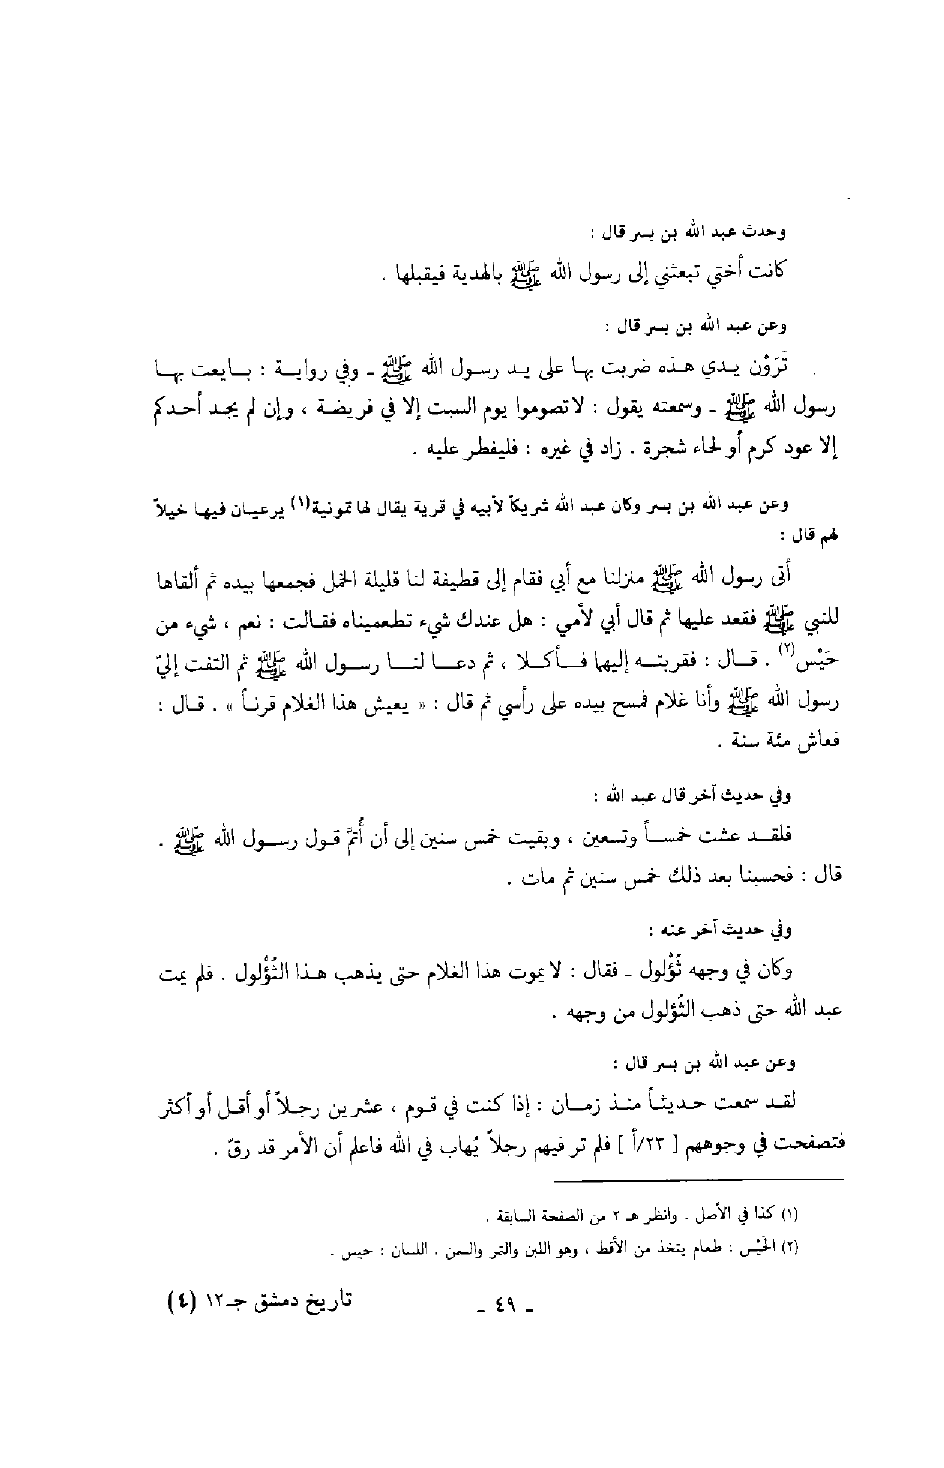 وحدث عبد الله بن بسر قال :
كانت أختي تبعثني إلى رسول الله ﷺ بالهدية فيقبلها .
وعن عبد الله بن بسر قال :
تَرَوْن يدي هذه ضربت بها على يد رسول الله ﷺ ـ وفي رواية : بايعت بها
رسول الله ﷺ ـ وسمعته يقول : لا تصوموا يوم السبت إلا في فريضة ، وإن لم يجد أحدكم
إلا عود كرم أو لحاء شجرة . زاد في غيره : فليفطر عليه .
وعن عبد الله بن بسر وكان عبد الله شريكاً لأبيه في قرية يقال لها تمونية(١) يرعيان فيها خيلاً
لهم قال :
أتى رسول الله ﷺ منزلنا مع أبي فقام إلى قطيفة لنا قليلة الخمل فجمعها بيده ثم ألقاها
للنبي ﷺ فقعد عليها ثم قال أبي لأمي : هل عندك شيء تطعميناه فقالت : نعم ، شيء من
حَيْس(٢) . قال : فقربته إليها فأكلا ، ثم دعا لنا رسول الله ﷺ ثم التفت إليّ
رسول الله ﷺ وأنا غلام فمسح بيده على رأسي ثم قال : « يعيش هذا الغلام قرناً » . قال :
فعاش مئة سنة .
وفي حديث آخر قال عبد الله :
فلقد عشت خمساً وتسعين ، وبقيت خمس سنين إلى أن أُتمَّ قول رسول الله ﷺ .
قال : فحسبنا بعد ذلك خمس سنين ثم مات .
وفي حديث آخر عنه :
وكان في وجهه ثُؤْلول ـ فقال : لا يموت هذا الغلام حتى يذهب هذا الثُؤْلول . فلم يمت
عبد الله حتى ذهب الثُؤلول من وجهه .
وعن عبد الله بن بسر قال :
لقد سمعت حديثاً منذ زمان : إذا كنت في قوم ، عشرين رجلاً أو أقل أو أكثر
فتصفحت في وجوههم [ ٢٣/أ ] فلم تر فيهم رجلاً يُهاب في الله فاعلم أن الأمر قد رقّ .
(١) كذا في الأصل . وانظر هـ ٢ من الصفحة السابقة .
(٢) الحَيْس : طعام يتخذ من الأقط ، وهو اللبن والتمر والسمن . اللسان : حيس .
ـ ٤٩ ـ
تاريخ دمشق جـ١٢ (٤)